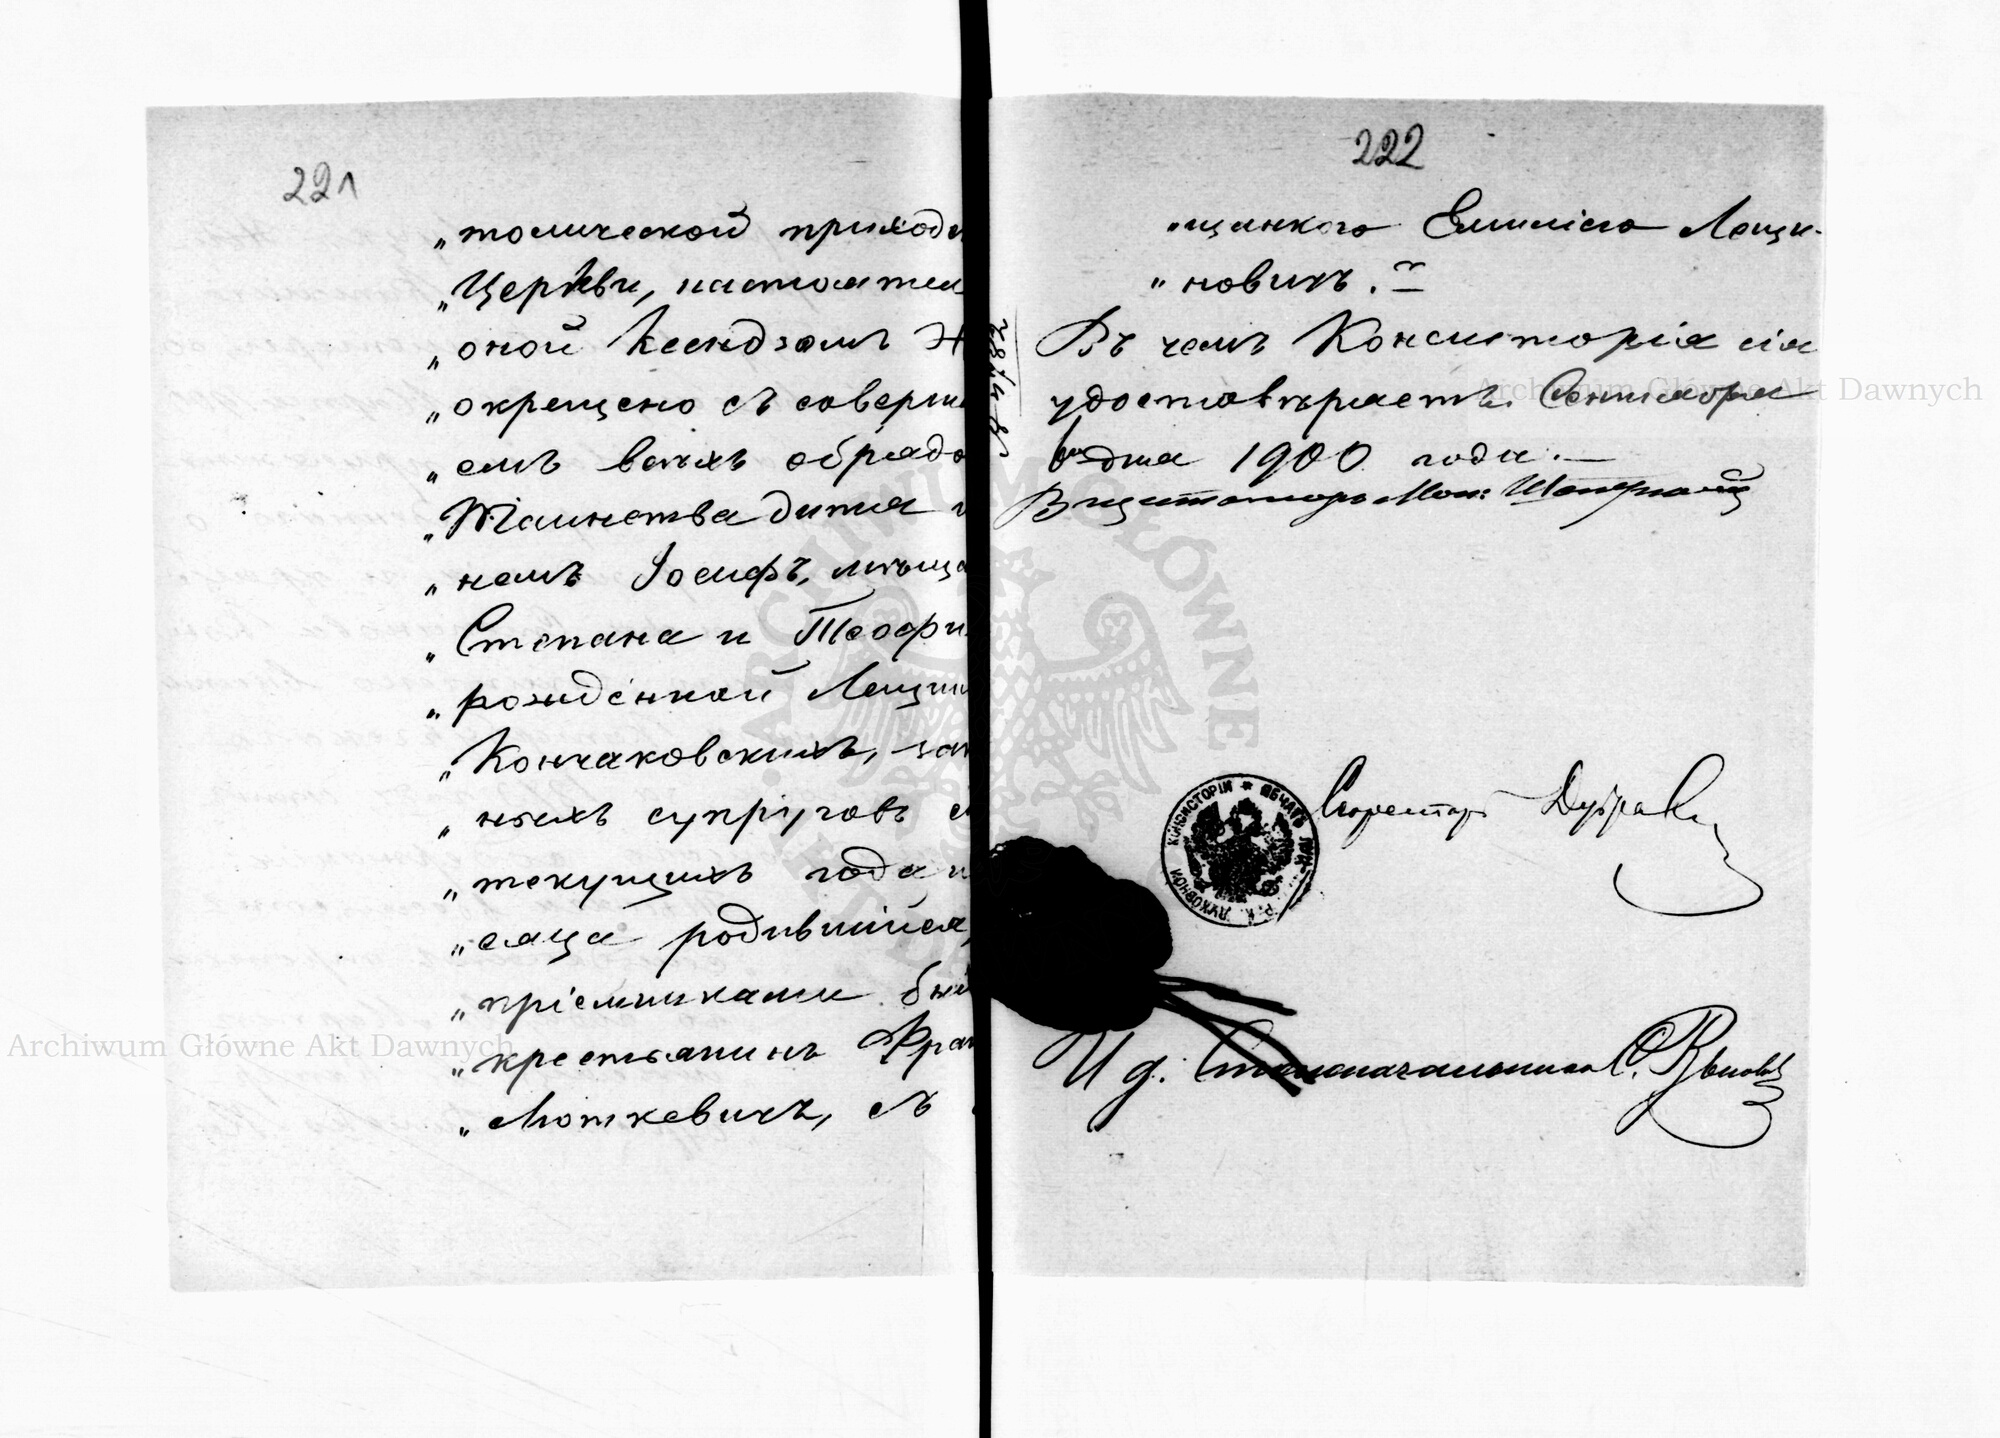 221
„толической приход
„Церкви, настоятел
„оной Ксендзомъ
„окрещено съ соверше
„емъ всѣхъ обрядо
„Таинства дитя
„немъ Іосифъ, мѣща
„Степана и Теофи
„рожденной Лещин
„Кончаковскихъ, зак
„ныхъ супруговъ с
„текущихъ года и
„сяца родившійся,
„пріемниками бы
„крестьянинъ Фран
„Моткевичъ, съ
222
„щанкого Емиліею Лещи-
„новичъ."
Въ чемъ Консисторія сія
удостовѣряетъ. Сентября
6го дня 1900 года.
Секретарь
И д. Столоначальника С.
ПЕЧАТЬ ЛУЦ.. Р. К. ДУХОВНОЙ КОНСИСТОРІИ
ARCHIWUM GŁÓWNE AKT DAWNYCH
Archiwum Główne Akt Dawnych
Archiwum Główne Akt Dawnych